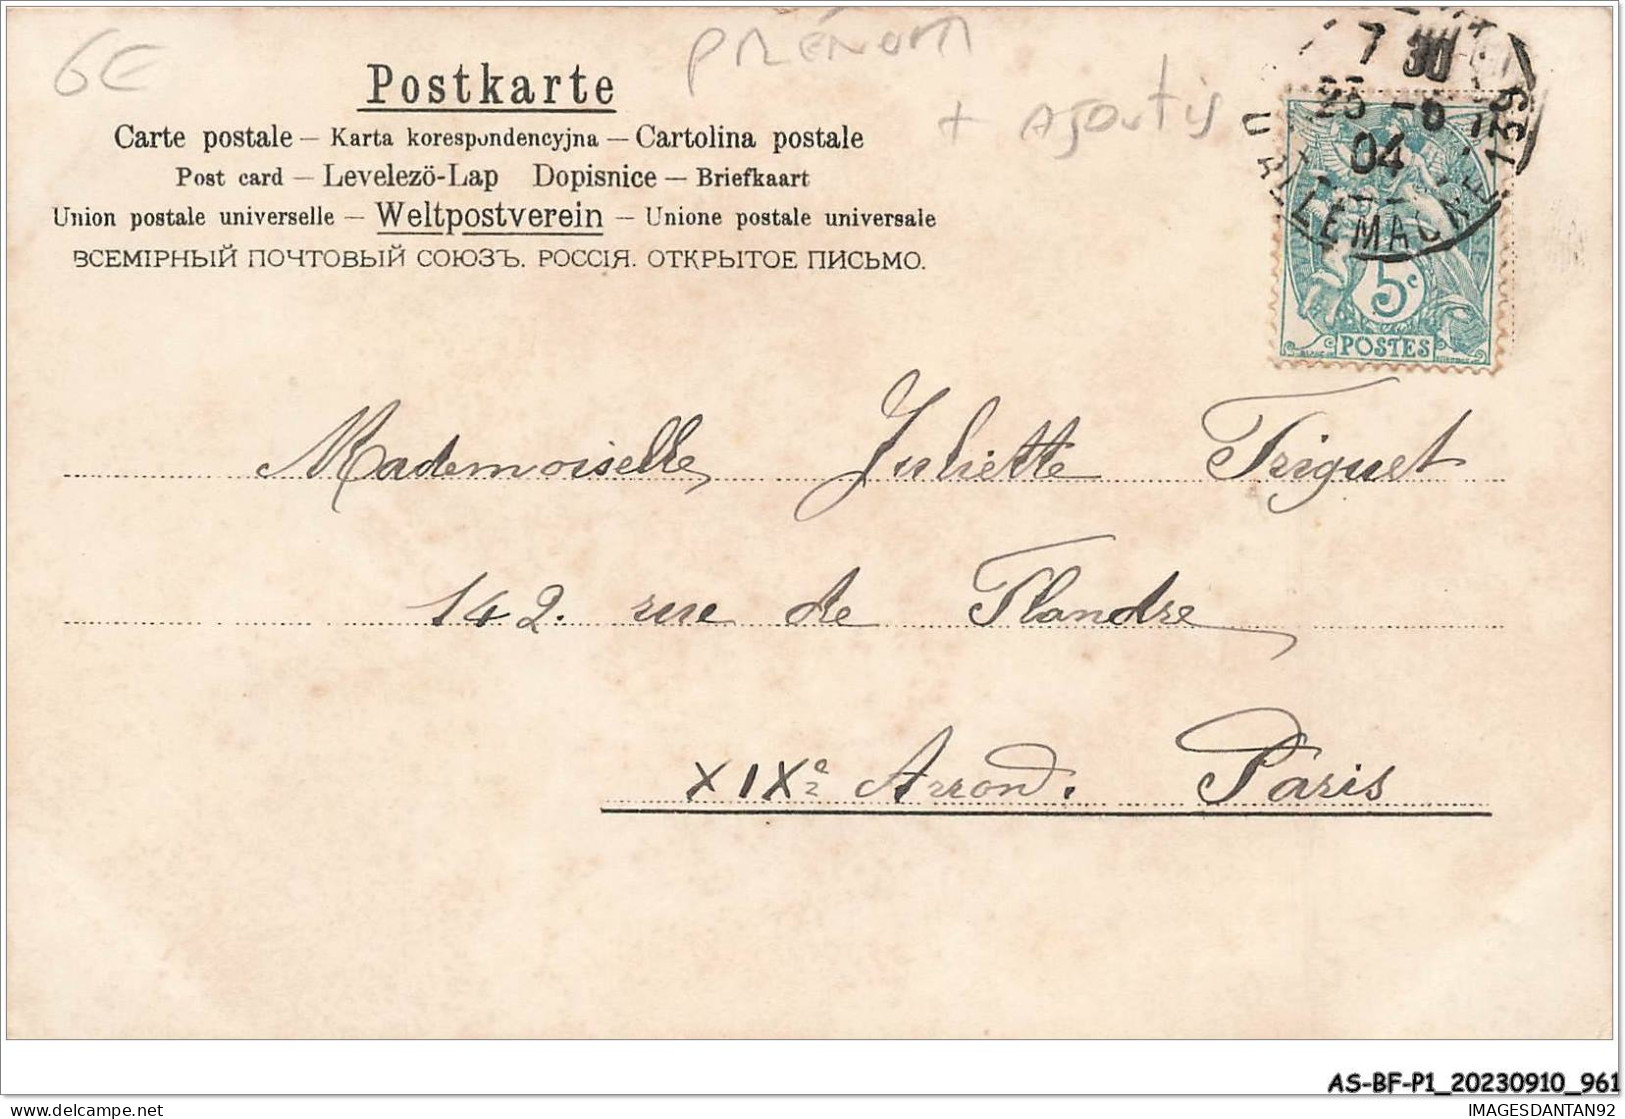 6€
PRÉNOM
+ AJOUTIS
Postkarte
Carte postale – Karta korespondencyjna – Cartolina postale
Post card – Levelezö-Lap Dopisnice – Briefkaart
Union postale universelle – Weltpostverein – Unione postale universale
ВСЕМІРНЫЙ ПОЧТОВЫЙ СОЮЗЪ. РОССІЯ. ОТКРЫТОЕ ПИСЬМО.
7 30
25 -6
04
5c
POSTES
Mademoiselle Juliette Triguet
142. rue de Flandre
XIXe Arrond. Paris
AS-BF-P1_20230910_961
delcampe.net
IMAGESDANTAN92